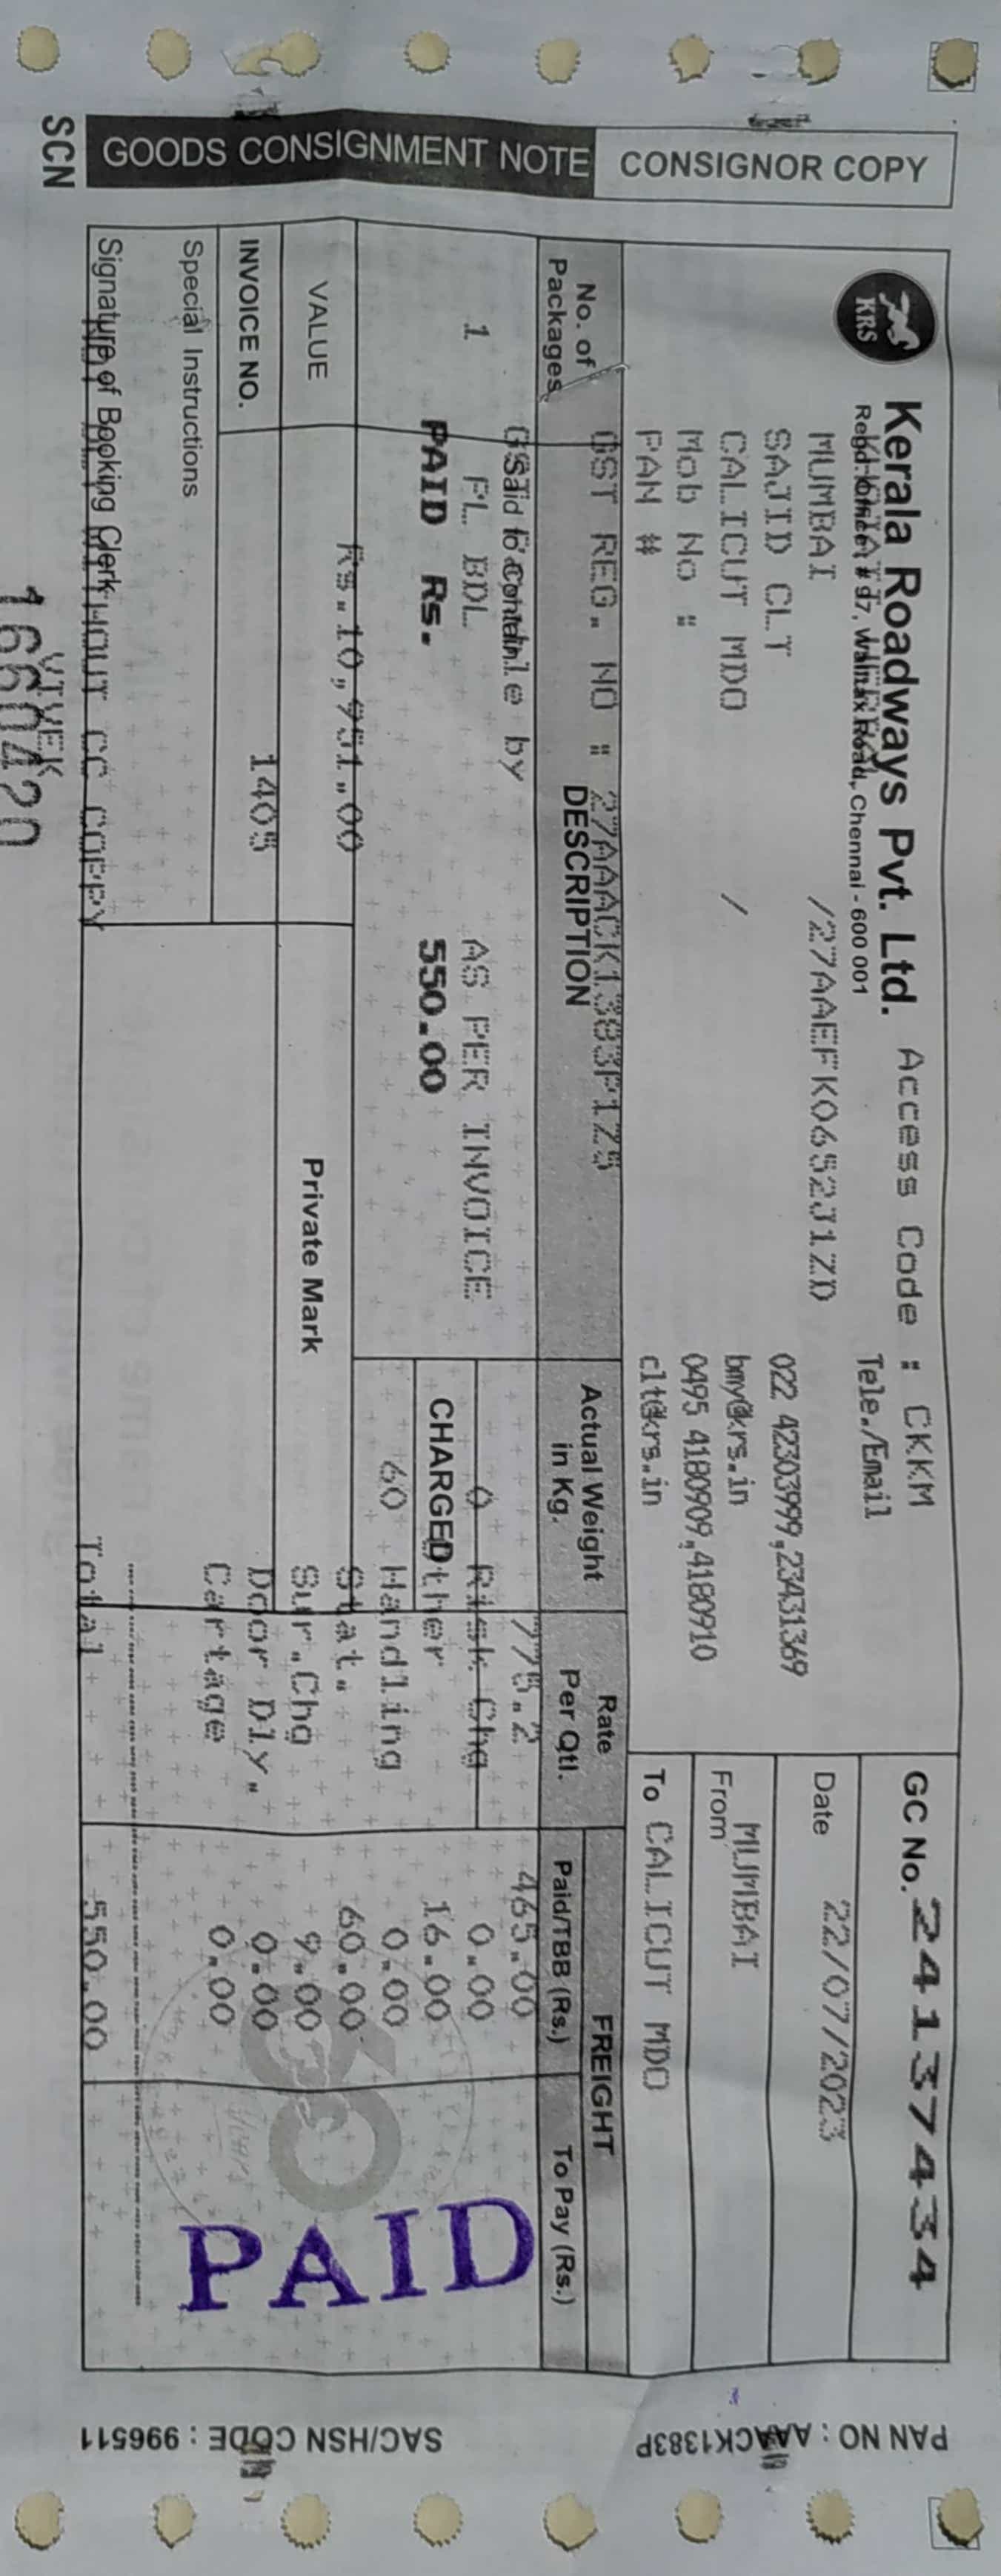 GOODS CONSIGNMENT NOTE
CONSIGNOR COPY
SCN
KRS
Kerala Roadways Pvt. Ltd. Access Code : CKKM
Regd. Office : # 97, Walltax Road, Chennai - 600 001
Tele./Email
MUMBAI /27AAEFK0652J1ZD
022 42303999,23431369
SAJID CLT
bmy@krs.in
CALICUT MDO /
0495 4180909,4180910
Mob No :
clt@krs.in
PAN #
GC No. 241374 34
Date 22/07/2023
From MUMBAI
To CALICUT MDO
GST REG. NO : 27AAACK1383P1Z5
No. of Packages
DESCRIPTION
Actual Weight in Kg.
Rate Per Qtl.
FREIGHT
Paid/TBB (Rs.)
To Pay (Rs.)
Said to Contain by
775.2 465.00
1 PL BDL AS PER INVOICE
0 Risk Chg 0.00
PAID Rs. 550.00
CHARGED Other 16.00
60 Handling 0.00
VALUE Rs.10,951.00
Stat. 60.00
Private Mark
Sur.Chg 9.00
INVOICE NO. 1405
Door Dly. 0.00
Cartage 0.00
Special Instructions
Total 550.00
PAID
Signature of Booking Clerk
WITHOUT CC COPY
VIVEK
1660420
PAN NO : AAACK1383P
SAC/HSN CODE : 996511